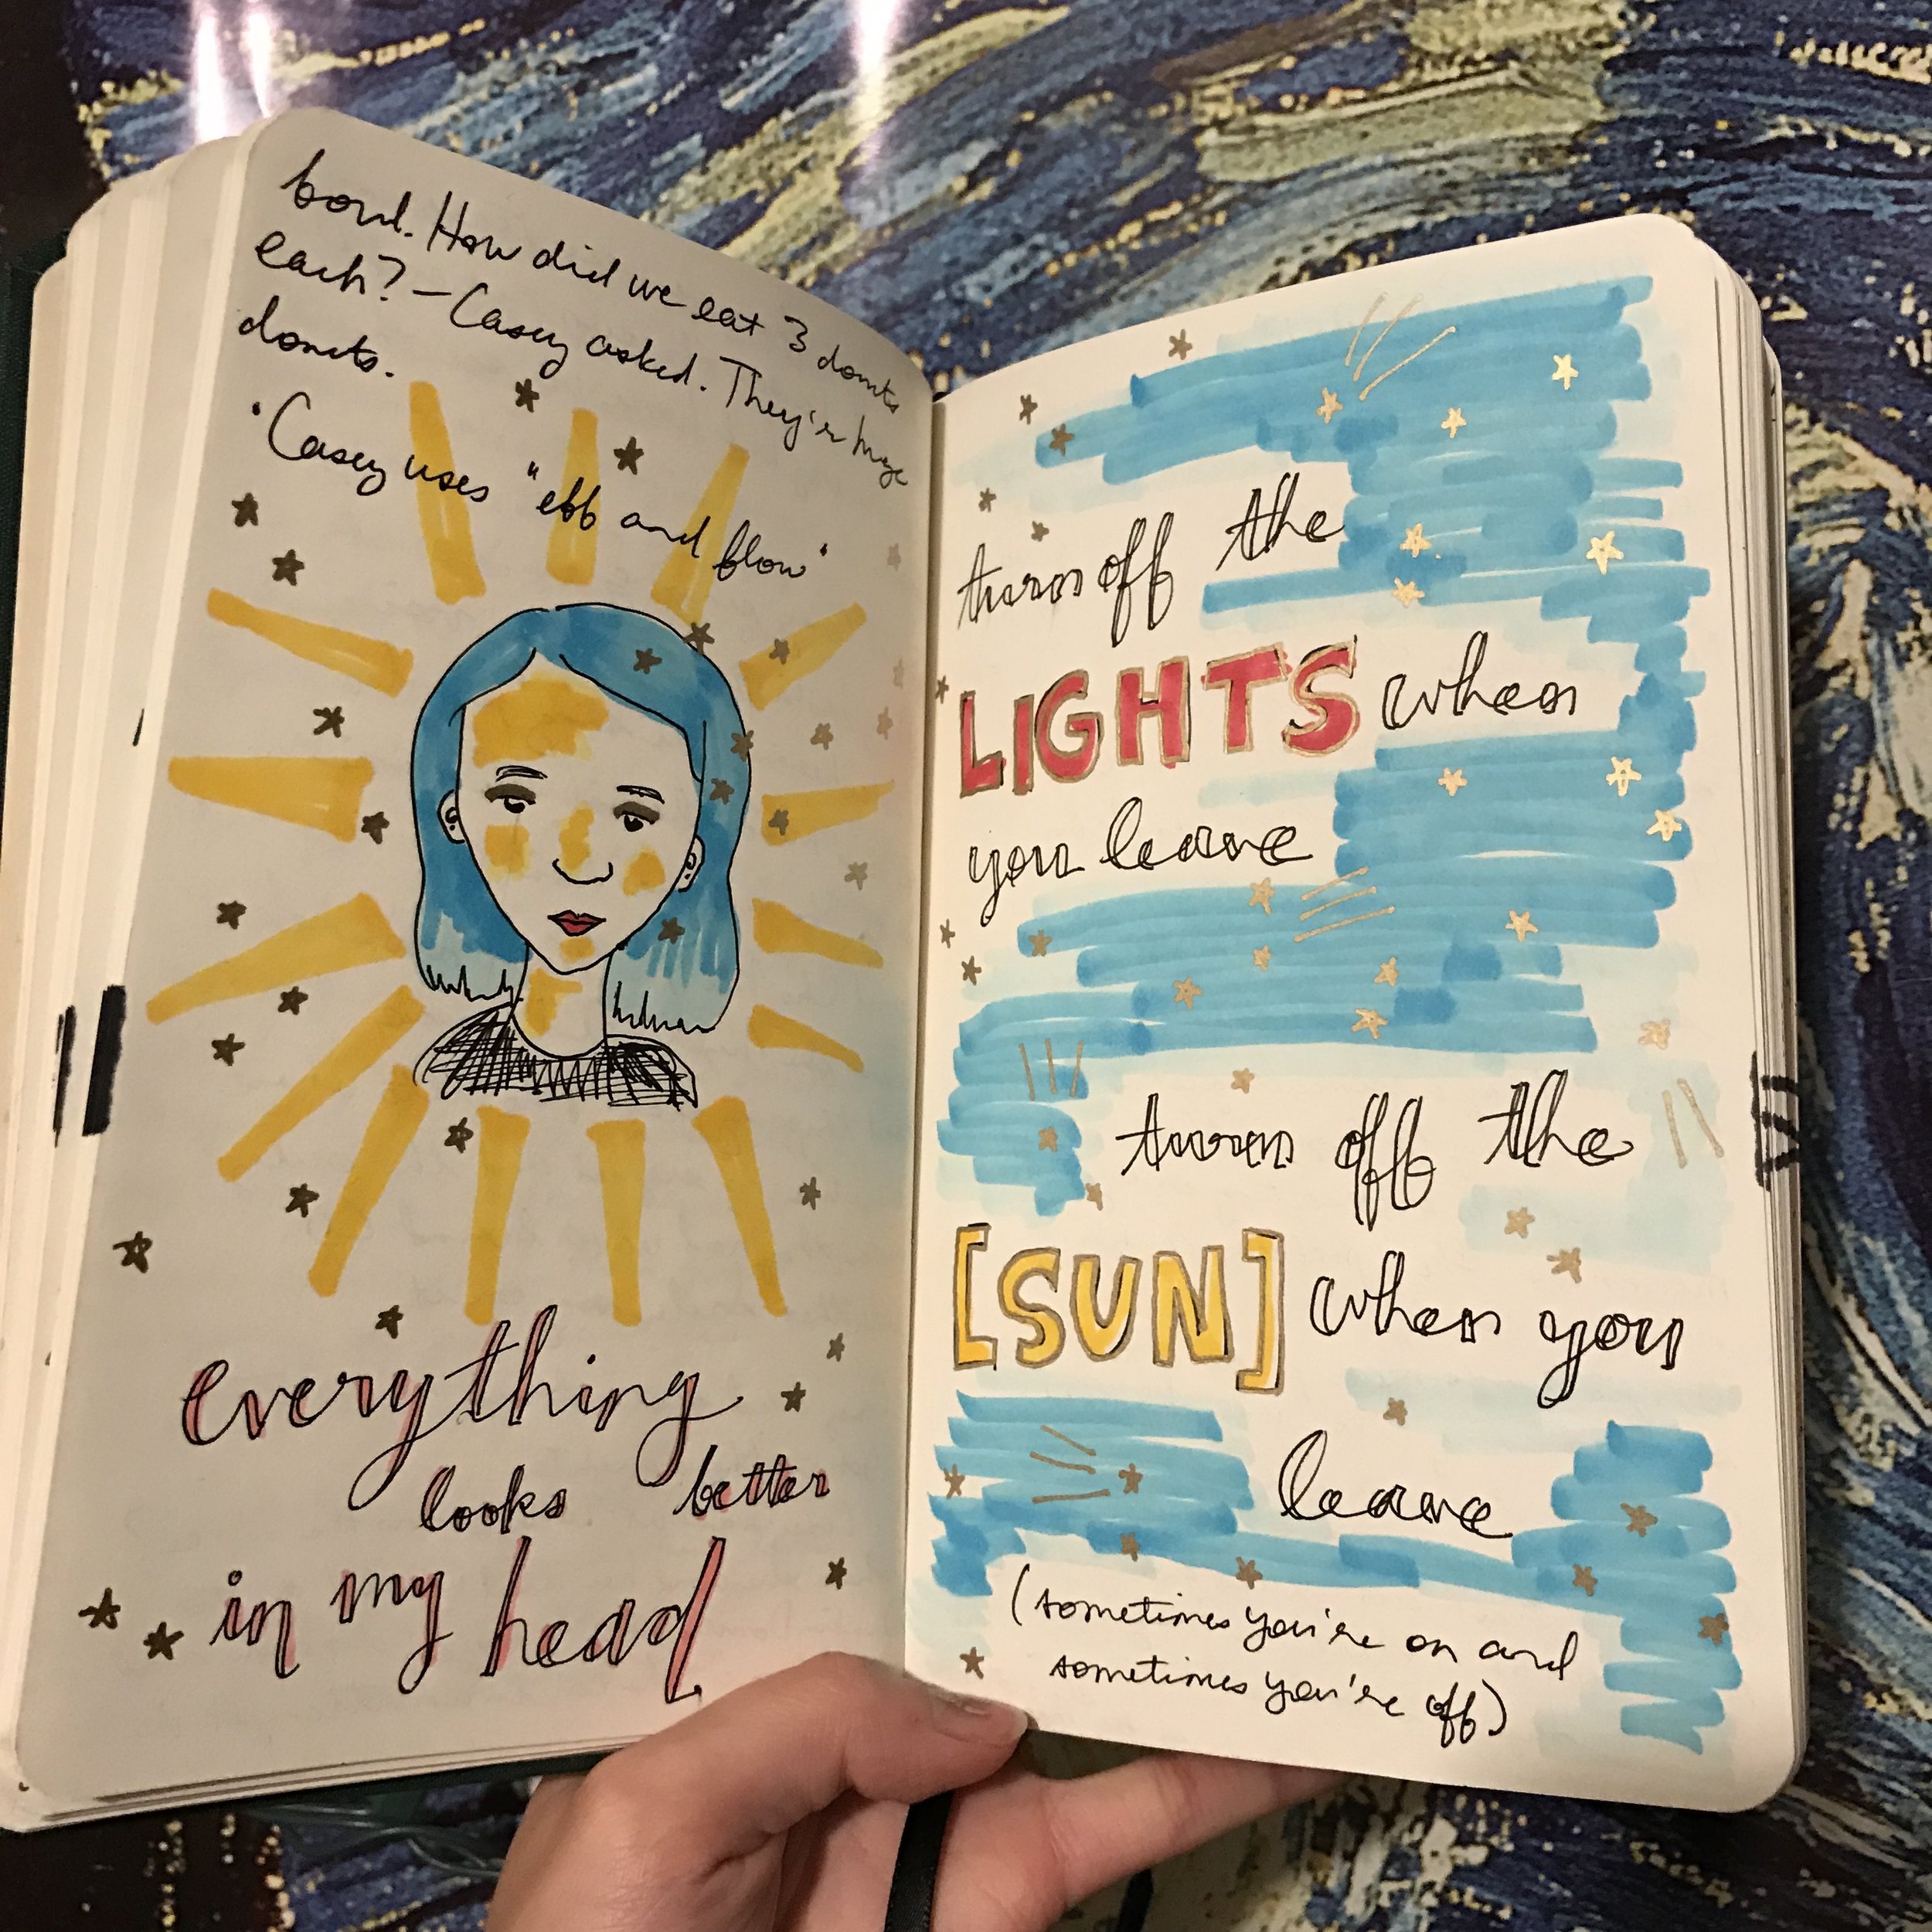 bowl. How did we eat 3 donuts
each? — Casey asked. They're huge
donuts.
• Casey uses "ebb and flow"
everything
looks better
in my head
turn off the
LIGHTS when
you leave
turn off the
[SUN] when you
leave
(sometimes you're on and
sometimes you're off)